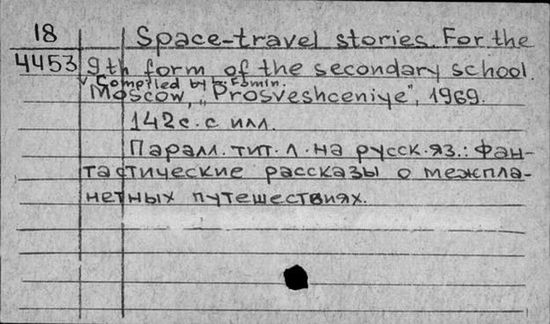 18 Space-travel stories. For the
4453 9th form of the secondary school.
Compiled by L. Fomin.
Moscow, „Prosveshceniye", 1969.
142с. с илл.
Паралл. тит. л. на русск. яз.: Фан-
тастические рассказы о межпла-
нетных путешествиях.